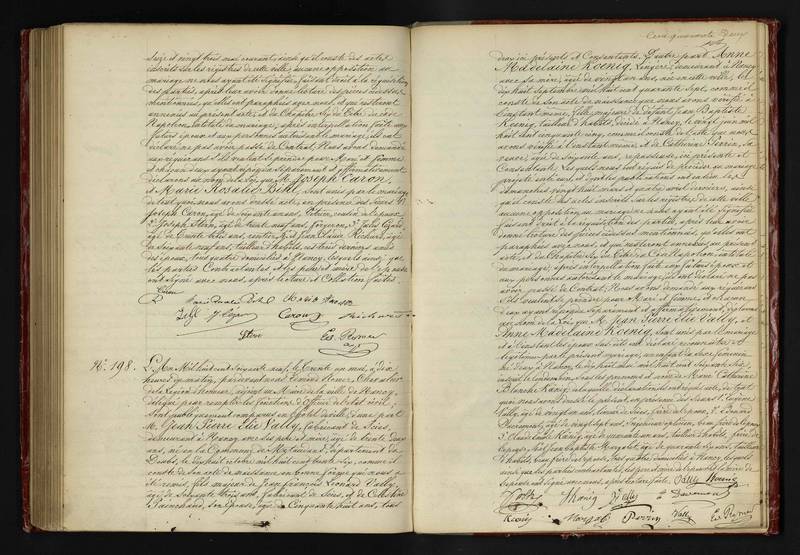 seize et vingt trois mai courant, ainsi qu'il conste des actes
inscrits sur les registres de cette ville, aucune opposition au
mariage ne nous ayant été signifiée, faisant droit à la réquisition
des parties, après leur avoir donné lecture des pièces
mentionnées, qu'elles ont paraphées avec nous, et qui resteront
annexées au présent acte, et du Chapitre Six du Titre du code
Napoléon, intitulé du mariage, après interpellation faite aux
futurs époux et aux personnes autorisant le mariage, ils ont
déclaré ne pas avoir passé de Contrat. Nous avons demandé
aux requérants s'ils veulent se prendre pour Mari et femme
et chacun d'eux ayant répondu séparément et affirmativement
déclarons au nom de la loi, que M. Joseph Caron,
et Marie Rosalie Bihl, sont unis par le mariage
de tout quoi nous avons dressé acte, en présence des Sieurs 1°
Joseph Caron, âgé de soixante ans, cousin de l'époux
2° Joseph Stern, âgé de trente neuf ans, forgeron, 3° Jules
âgé de trente trois ans, Jean Claude Richard, âgé
de Soixante neuf ans, tailleur d'habits, ces trois derniers amis
des époux, tous quatre domiciliés à Nancy, lesquels ainsi que
les parties Contractantes et les père et mère de l'épouse
ont signé avec nous après lecture et Collation faites.
Caron
Marie Rosalie Bihl
Caron
Stern
Ed. Remer
N°. 198.
L'An Mil huit cent Soixante neuf, le Trente un mai, à dix
heures du matin, par devant nous Edmond Remer, Chevalier
de la Légion d'honneur, adjoint au Maire de la ville de Nancy,
délégué pour remplir les fonctions d'Officier de l'état civil,
Sont publiquement comparus en l'hôtel de ville d'une part
M. Jean Pierre Elie Vally, fabricant de Scies,
demeurant à Nancy avec ses père et mère, âgé de trente deux
ans, né en la Commune de département du
Doubs, le dix huit octobre mil huit cent trente six, comme il
conste de son acte de naissance en bonne forme qui nous a
été remis, fils majeur de Jean François Léonard Vally,
âgé de Soixante trois ans, fabricant de Scies, et de
son Epouse, âgée de Cinquante huit ans, tous
Cent quarante Deux
deux ici présents et Consentants. D'autre part Anne
Madelaine Koenig, lingère, demeurant à Nancy
avec sa mère, âgée de vingt un ans, née en cette ville, le
dix huit Septembre mil huit cent quarante sept, comme il
conste de son acte de naissance que nous avons vérifié à
l'instant même, fille majeure de défunt Jean Baptiste
Koenig, tailleur d'habits, décédé à Nancy, le vingt juin mil
huit cent cinquante cinq, comme il conste de l'acte que nous
avons vérifié à l'instant même, et de Catherine Perrin, sa
veuve, âgée de soixante ans, repasseuse, ici présente et
Consentante. Lesquels nous ont requis de procéder au mariage
projeté entre eux et dont les publications ont eu lieu les
dimanches vingt huit mars et quatre avril derniers, ainsi
qu'il conste des actes inscrits sur les registres de cette ville
aucune opposition au mariage ne nous ayant été signifiée
faisant droit à la réquisition des parties, après leur avoir
donné lecture des pièces mentionnées, qu'elles ont
paraphées avec nous, et qui resteront annexées au présent
acte, et du Chapitre Six du Titre du Code Napoléon, intitulé
du mariage, après interpellation faite aux futurs époux et
aux personnes autorisant le mariage, ils ont déclaré ne pas
avoir passé de Contrat. Nous avons demandé aux requérants
s'ils veulent se prendre pour Mari et femme, et chacun
d'eux ayant répondu séparément et affirmativement, déclarons
au nom de la loi, que M. Jean Pierre Elie Vally, et
Anne Madelaine Koenig, sont unis par le mariage
et à l'instant les époux susdits ont déclaré reconnaître et
légitimer par le présent mariage, un enfant du Sexe féminin
né d'eux à Nancy, le dix huit mil huit cent soixante six,
inscrit le lendemain, sous les prénoms et nom de Marie Catherine
Blanche Koenig de laquelle déclaration ils ont requis acte, de tout
quoi nous avons dressé le présent, en présence des Sieurs 1° Eugène
Vally, âgé de vingt un ans, fabricant de Scies, frère de l'époux, 2°
âgé de vingt sept ans,
3° Claude Louis Koenig, âgé de quarante ans, tailleur d'habits, frère de
l'épouse, Jean Baptiste Margalet, âgé de quarante ans, tailleur
d'habits, beau frère de l'épouse, tous quatre domiciliés à Nancy, lesquels
ainsi que les parties contractantes, les père et mère de l'époux et la mère de
l'épouse ont signé avec nous, après lecture faite. Vally Koenig
Koenig Vally
Koenig Perrin Vally Ed. Remer